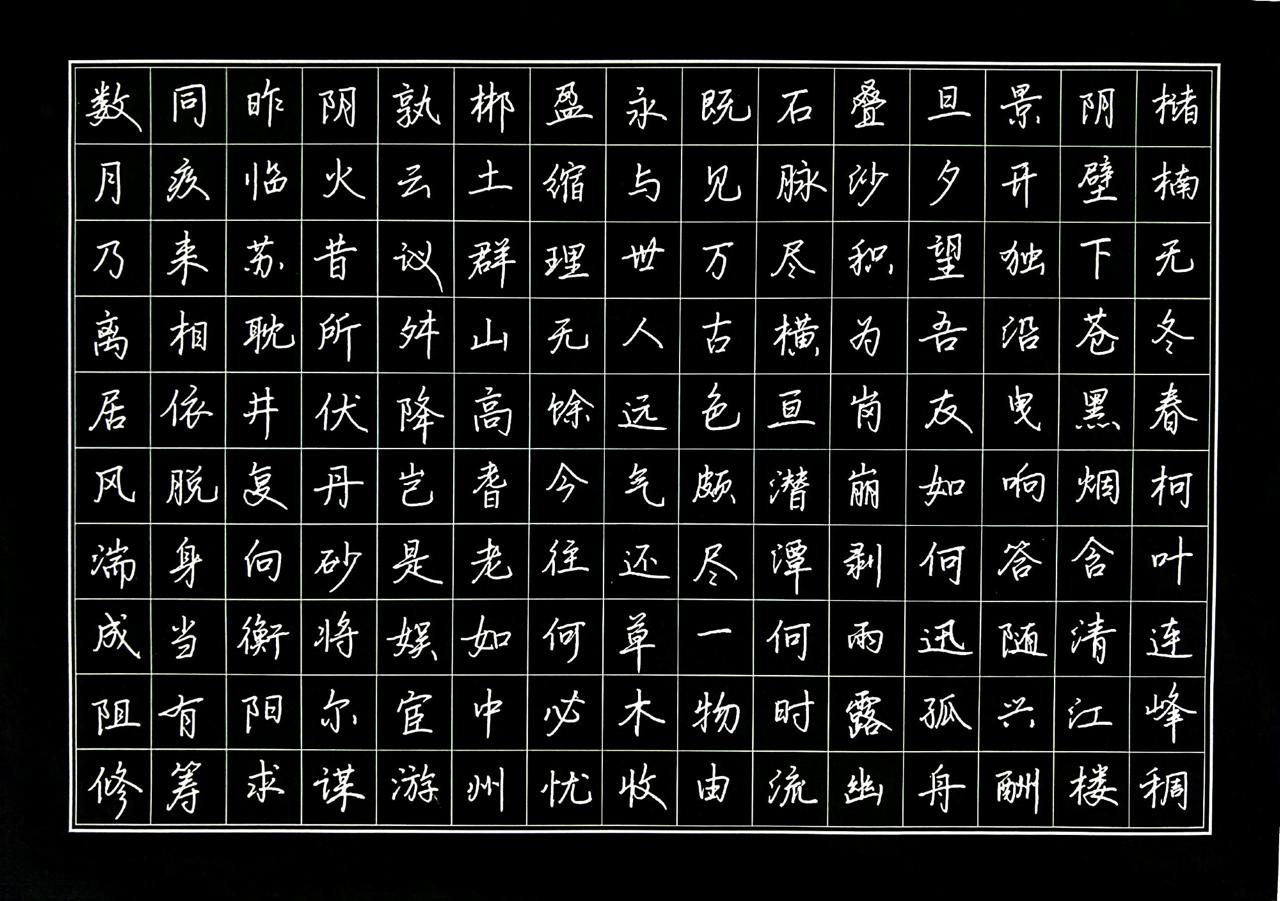 楮楠无冬春柯叶连峰稠
阴壁下苍黑烟含清江楼
景开独沿曳响答随兴酬
旦夕望吾友如何迅孤舟
叠沙积为岗崩剥雨露幽
石脉尽横亘潜潭何时流
既见万古色颇尽一物由
永与世人远气还草木收
盈缩理无馀今往何必忧
郴土群山高耆老如中州
孰云议舛降岂是娱宦游
阴火昔所伏丹砂将尔谋
昨临苏耽井复向衡阳求
同疾来相依脱身当有筹
数月乃离居风湍成阻修